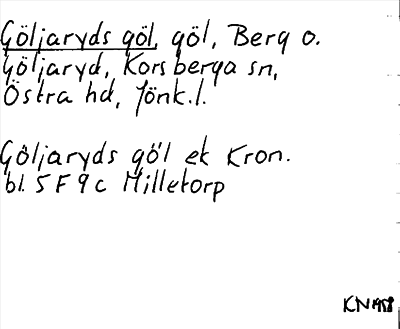 Göljaryds göl, göl, Berg o.
Göljaryd, Korsberga sn,
Östra hd, Jönk.l.
Göljaryds göl ek Kron.
bl. 5 F 9 c Milletorp
KN